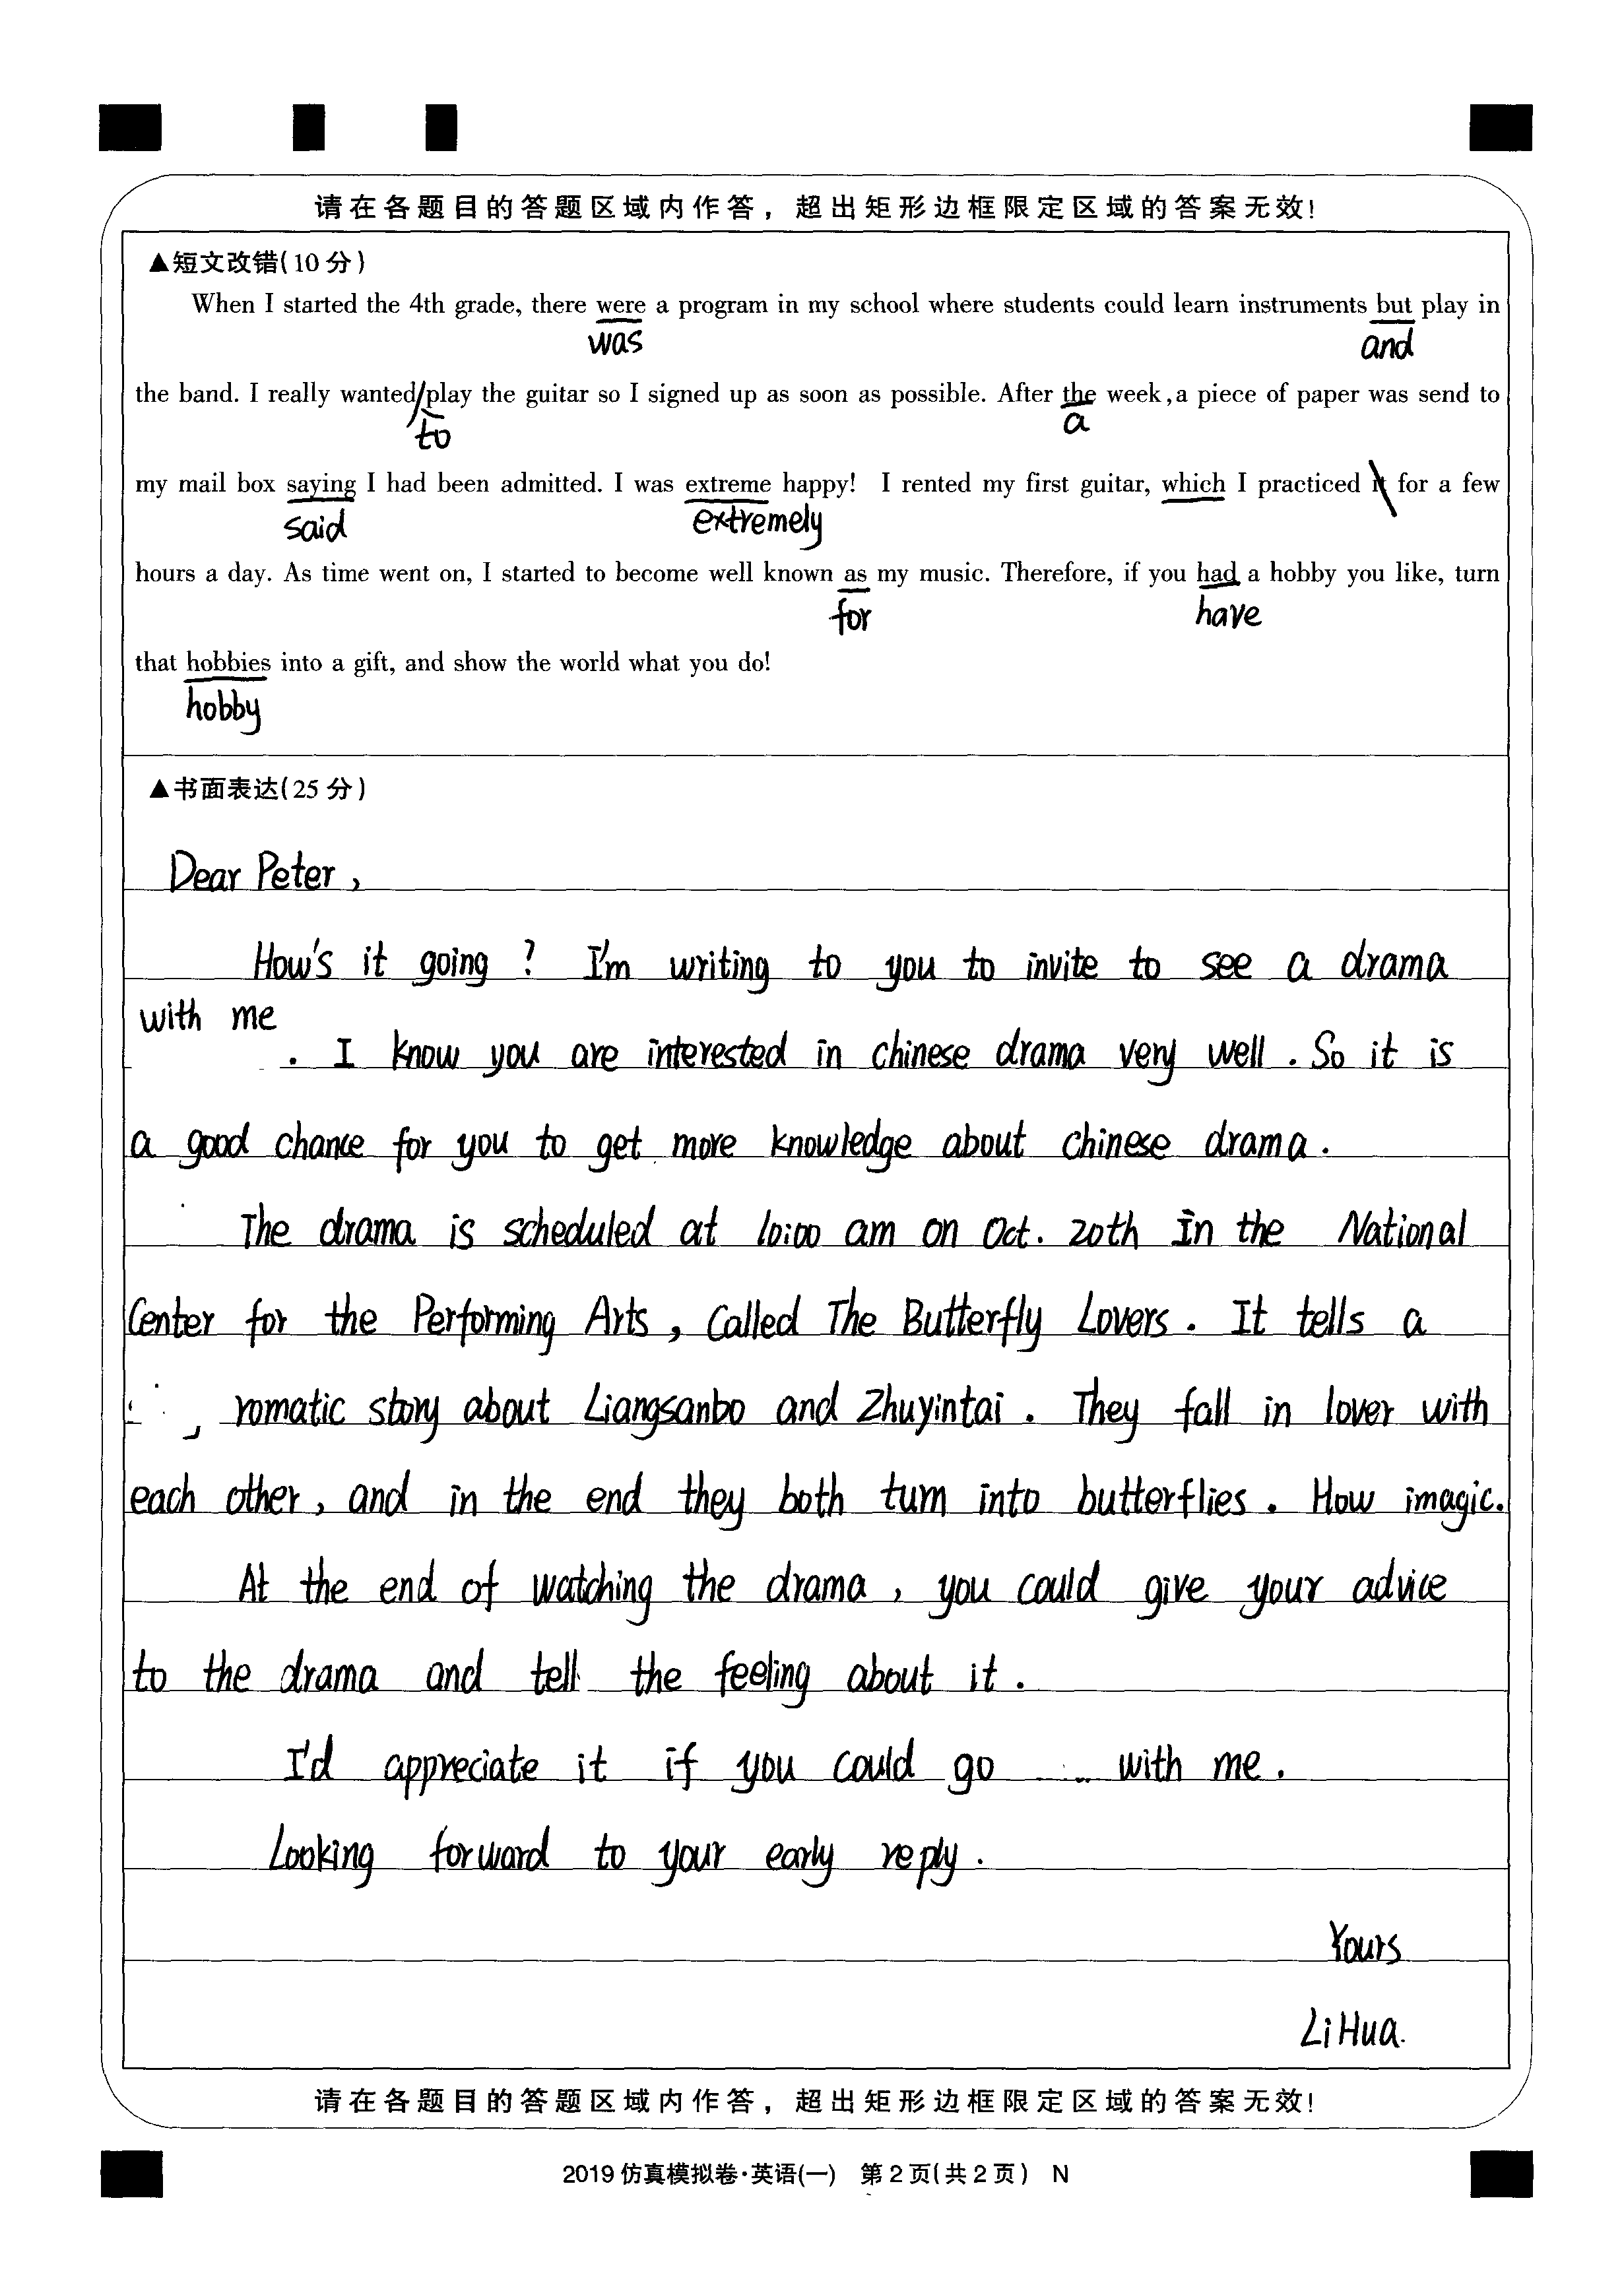 请在各题目的答题区域内作答，超出矩形边框限定区域的答案无效!
▲短文改错(10分)
When I started the 4th grade, there were a program in my school where students could learn instruments but play in
was and
the band. I really wanted/play the guitar so I signed up as soon as possible. After the week,a piece of paper was send to
to a
my mail box saying I had been admitted. I was extreme happy! I rented my first guitar, which I practiced it for a few
said extremely
hours a day. As time went on, I started to become well known as my music. Therefore, if you had a hobby you like, turn
for have
that hobbies into a gift, and show the world what you do!
hobby
▲书面表达(25分)
Dear Peter,
How's it going? I'm writing to you to invite to see a drama
with me
. I know you are interested in chinese drama very well. So it is
a good chance for you to get more knowledge about chinese drama.
The drama is scheduled at 10:00 am on Oct. 20th In the National
Center for the Performing Arts, Called The Butterfly Lovers. It tells a
romatic story about Liangsanbo and Zhuyintai. They fall in lover with
each other, and in the end they both turn into butterflies. How imagic.
At the end of watching the drama, you could give your advice
to the drama and tell the feeling about it.
I'd appreciate it if you could go with me.
Looking forward to your early reply.
Yours
Li Hua.
请在各题目的答题区域内作答，超出矩形边框限定区域的答案无效!
2019仿真模拟卷·英语(一) 第2页(共2页) N